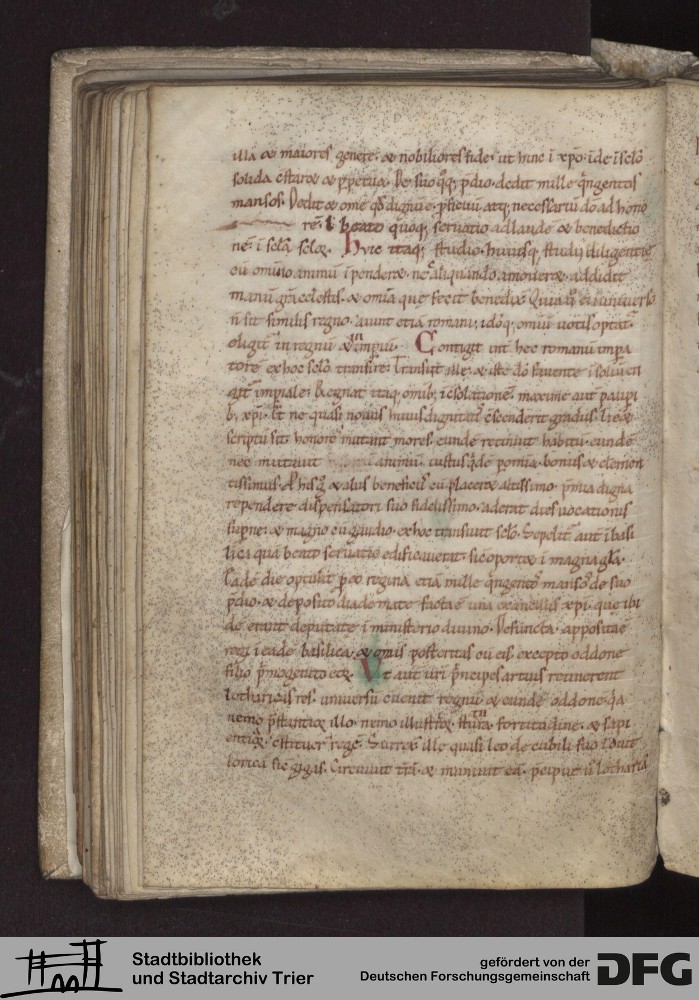 illa & maiores genere · & nobiliores fide · ut hinc i xpo · ide i sclo
solida cstar& & ppetua · De suo qq; pdio · dedit mille qngentos
mansos · Dedit & ome qd dignu e · pficuu atq; necessariu do ad hono
re · beato quoq; seruatio ad laude & benedictio
ne · i scla sclo · Huic itaq; studio · huiusq; studii diligentie
cu omino animu i pender& · ne aliquando amouer& · addidit
manu gra celestis · & omia que fecit benedix
n sit similis regno · aiunt etia romani · idoq; omiu uotis optat
eligit in regnu & in impiu · Contigit int hec romanu impa
tore ex hoc sclo transire · Transiit ille · & iste do fauente i solu
impiale · Regnat itaq; omib; i csolatione · maxime aut paupi
b; xpi · Et ne quasi nouus huius dignitatis cscenderit gradus · lic&
scriptu sit · honores mutant mores · eunde retinuit habitu · eunde
nec mutauit animu · iustus qde · bonus & clemen
tissimus · His & aliis beneficiis cu placer& altissimo · pmia digna
rependere dispensatori suo fidelissimo · aderat dies uocationis
supne · & magno cu gaudio · ex hoc transiuit sclo · Sepelit aut i basi
lica qua beato seruatio edificauerat · sic oport& i magna gla ·
Eade die optulit p eo regina etia mille qngentos mansos de suo
pdio · & deposito diademate facta e una ex ancillis xpi · que ibi
de erant deputate i ministerio diuino · Defuncta · apposita e
regi i eade basilica · & omis posteritas cu eis · excepto oddone
filio pmogenito
Ut aut uri pncipes artius retinerent
lothariensis · uniuersu euenit regnu & eunde oddone · qa
nemo pstantior illo · nemo illustrior · statura fortitudine · & sapi
entia · cstituer rege · Surrex ille quasi leo de cubili suo
lorica sic gigas · Circuiuit tra · & muniuit ea · pcipue u lotharia
Stadtbibliothek
und Stadtarchiv Trier
gefördert von der
Deutschen Forschungsgemeinschaft
DFG